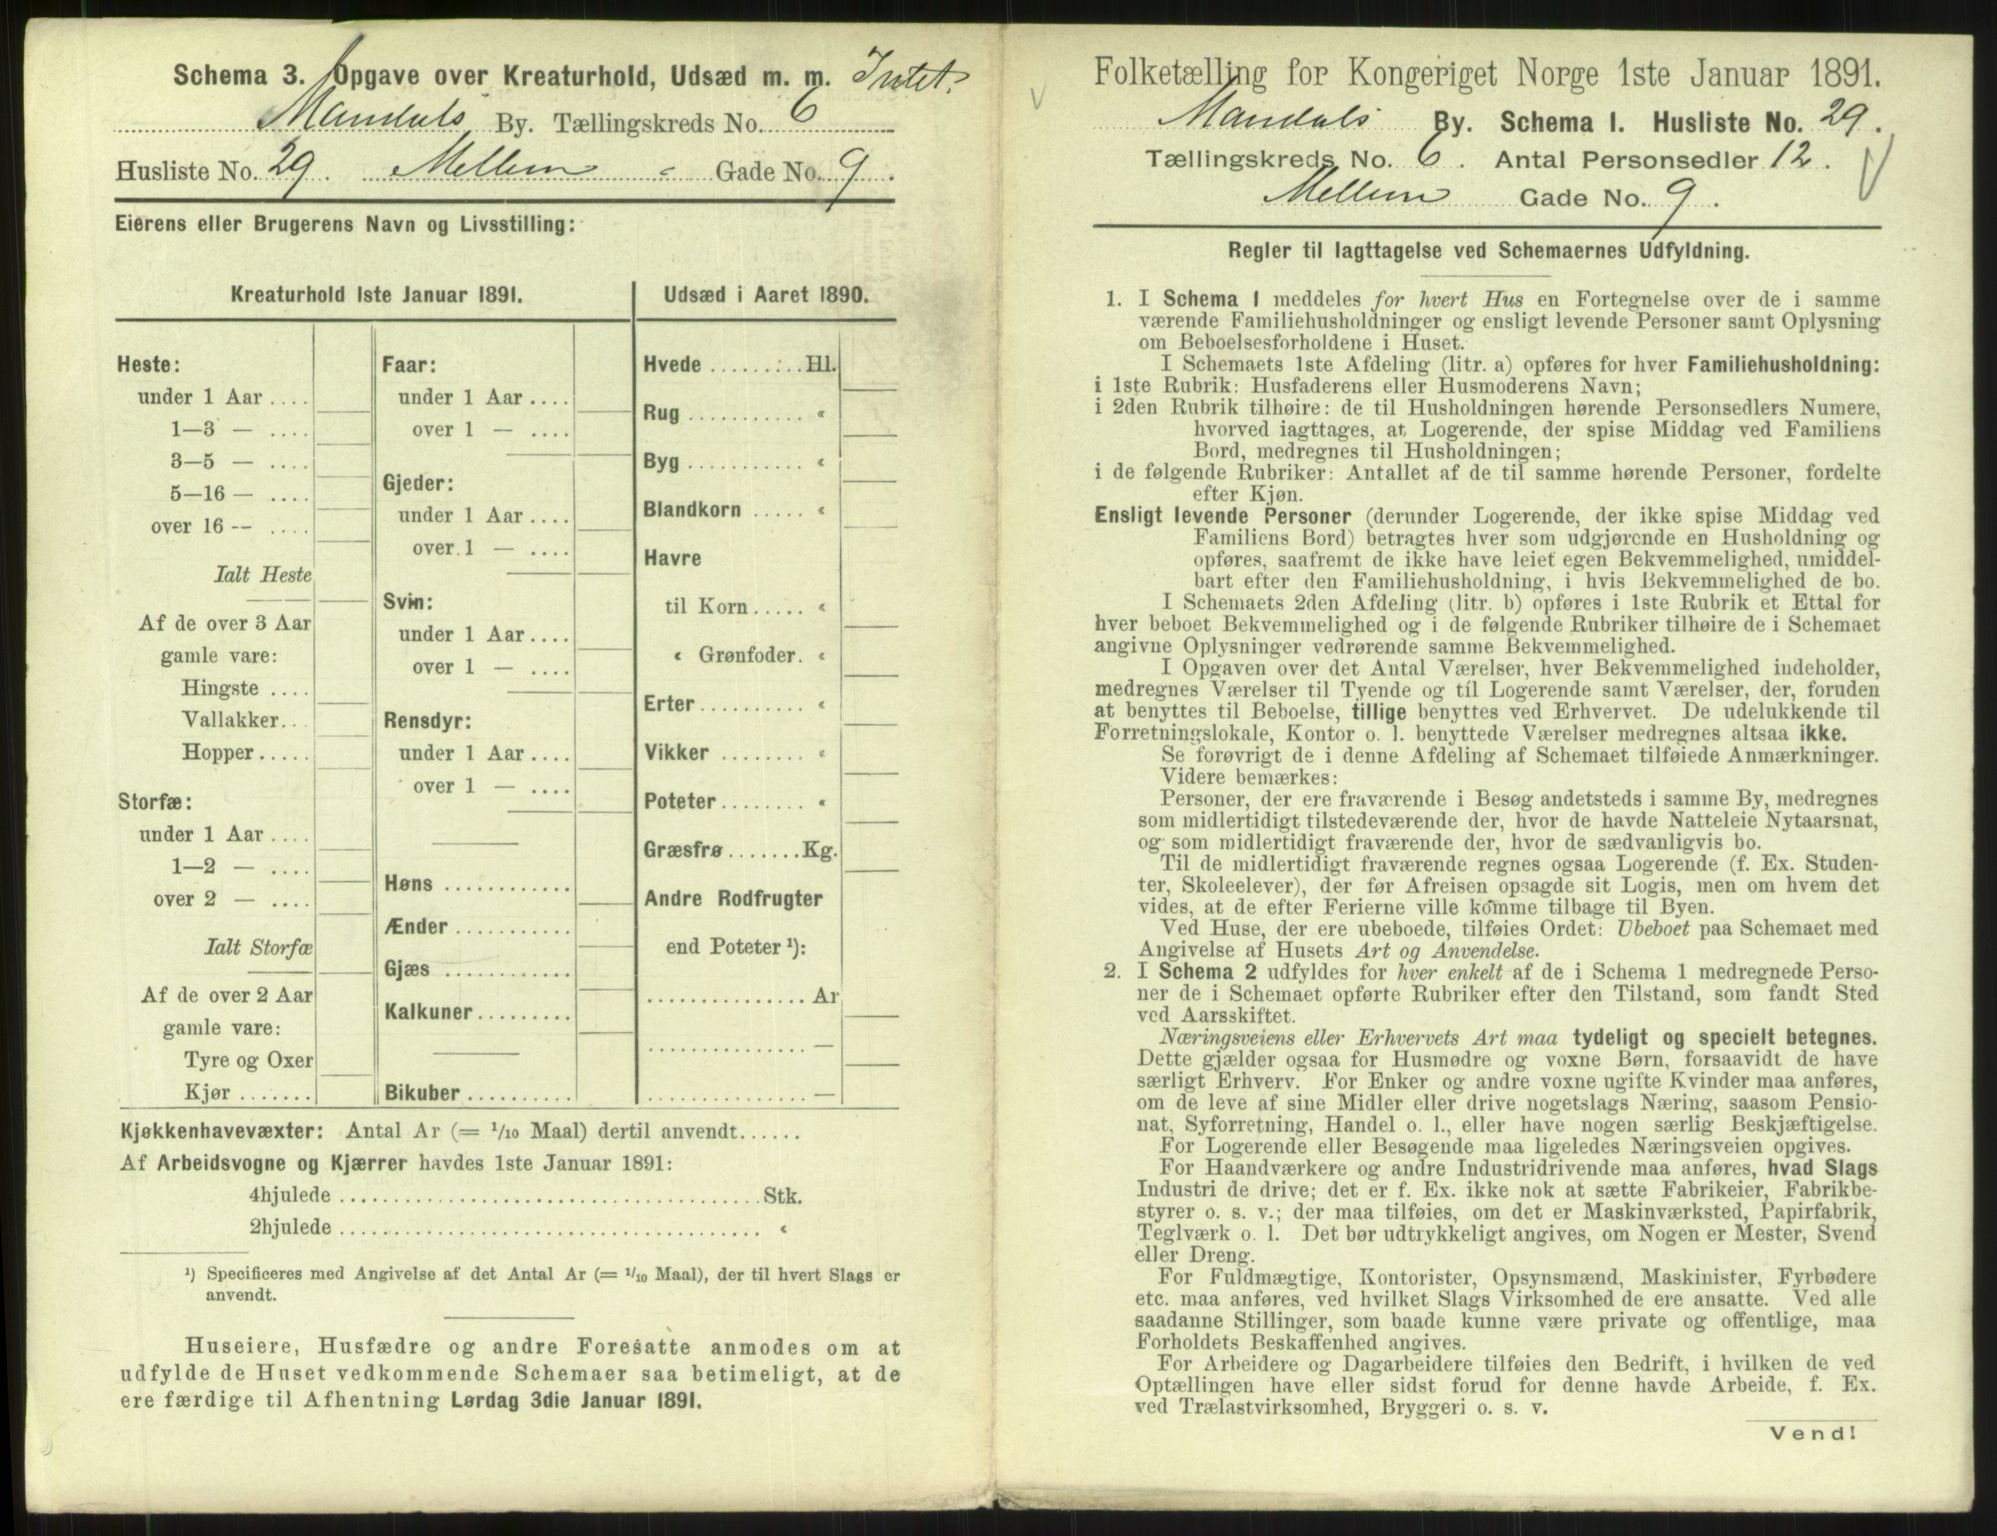 Schema 3. Opgave over Kreaturhold, Udsæd m. m. Intet.
Mandals By. Tællingskreds No. 6
Husliste No. 29. Mellem - Gade No. 9.
Eierens eller Brugerens Navn og Livsstilling:
Kreaturhold 1ste Januar 1891.
Heste:
under 1 Aar ....
1—3 — ....
3—5 — ....
5—16 — ....
over 16 -- ....
Ialt Heste
Af de over 3 Aar
gamle vare:
Hingste ....
Vallakker...
Hopper.....
Storfæ:
under 1 Aar ....
1—2 — ....
over 2 — ....
Ialt Storfæ
Af de over 2 Aar
gamle vare:
Tyre og Oxer
Kjør .......
Faar:
under 1 Aar ....
over 1 — ....
Gjeder:
under 1 Aar ....
over 1 — ....
Svin:
under 1 Aar ....
over 1 — ....
Rensdyr:
under 1 Aar ....
over 1 — ....
Høns ............
Ænder ...........
Gjæs ............
Kalkuner.........
Bikuber ..........
Udsæd i Aaret 1890.
Hvede ........ Hl.
Rug .......... «
Byg .......... «
Blandkorn ..... «
Havre
til Korn ..... «
« Grønfoder. «
Erter ......... «
Vikker ........ «
Poteter ........ «
Græsfrø ....... Kg.
Andre Rodfrugter
end Poteter ¹):
............... Ar
............... —
............... —
Kjøkkenhavevæxter: Antal Ar (= 1/10 Maal) dertil anvendt......
Af Arbeidsvogne og Kjærrer havdes 1ste Januar 1891:
4hjulede ........................................ Stk.
2hjulede ........................................ «
¹) Specificeres med Angivelse af det Antal Ar (= 1/10 Maal), der til hvert Slags er
anvendt.
Huseiere, Husfædre og andre Foresatte anmodes om at
udfylde de Huset vedkommende Schemaer saa betimeligt, at de
ere færdige til Afhentning Lørdag 3die Januar 1891.
Folketælling for Kongeriget Norge 1ste Januar 1891.
Mandals By. Schema I. Husliste No. 29.
Tællingskreds No. 6. Antal Personsedler 12.
Mellem Gade No. 9.
Regler til Iagttagelse ved Schemaernes Udfyldning.
1. I Schema I meddeles for hvert Hus en Fortegnelse over de i samme
værende Familiehusholdninger og ensligt levende Personer samt Oplysning
om Beboelsesforholdene i Huset.
I Schemaets 1ste Afdeling (litr. a) opføres for hver Familiehusholdning:
i 1ste Rubrik: Husfaderens eller Husmoderens Navn;
i 2den Rubrik tilhøire: de til Husholdningen hørende Personsedlers Numere,
hvorved iagttages, at Logerende, der spise Middag ved Familiens
Bord, medregnes til Husholdningen;
i de følgende Rubriker: Antallet af de til samme hørende Personer, fordelte
efter Kjøn.
Ensligt levende Personer (derunder Logerende, der ikke spise Middag ved
Familiens Bord) betragtes hver som udgjørende en Husholdning og
opføres, saafremt de ikke have leiet egen Bekvemmelighed, umiddel-
bart efter den Familiehusholdning, i hvis Bekvemmelighed de bo.
I Schemaets 2den Afdeling (litr. b) opføres i 1ste Rubrik et Ettal for
hver beboet Bekvemmelighed og i de følgende Rubriker tilhøire de i Schemaet
angivne Oplysninger vedrørende samme Bekvemmelighed.
I Opgaven over det Antal Værelser, hver Bekvemmelighed indeholder,
medregnes Værelser til Tyende og til Logerende samt Værelser, der, foruden
at benyttes til Beboelse, tillige benyttes ved Erhvervet. De udelukkende til
Forretningslokale, Kontor o. l. benyttede Værelser medregnes altsaa ikke.
Se forøvrigt de i denne Afdeling af Schemaet tilføiede Anmærkninger.
Videre bemærkes:
Personer, der ere fraværende i Besøg andetsteds i samme By, medregnes
som midlertidigt tilstedeværende der, hvor de havde Natteleie Nytaarsnat,
og som midlertidigt fraværende der, hvor de sædvanligvis bo.
Til de midlertidigt fraværende regnes ogsaa Logerende (f. Ex. Studen-
ter, Skoleelever), der før Afreisen opsagde sit Logis, men om hvem det
vides, at de efter Ferierne ville komme tilbage til Byen.
Ved Huse, der ere ubeboede, tilføies Ordet: Ubeboet paa Schemaet med
Angivelse af Husets Art og Anvendelse.
2. I Schema 2 udfyldes for hver enkelt af de i Schema 1 medregnede Perso-
ner de i Schemaet opførte Rubriker efter den Tilstand, som fandt Sted
ved Aarsskiftet.
Næringsveiens eller Erhvervets Art maa tydeligt og specielt betegnes.
Dette gjælder ogsaa for Husmødre og voxne Børn, forsaavidt de have
særligt Erhverv. For Enker og andre voxne ugifte Kvinder maa anføres,
om de leve af sine Midler eller drive nogetslags Næring, saasom Pensio-
nat, Syforretning, Handel o. l., eller have nogen særlig Beskjæftigelse.
For Logerende eller Besøgende maa ligeledes Næringsveien opgives.
For Haandværkere og andre Industridrivende maa anføres, hvad Slags
Industri de drive; det er f. Ex. ikke nok at sætte Fabrikeier, Fabrikbe-
styrer o. s. v.; der maa tilføies, om det er Maskinværksted, Papirfabrik,
Teglværk o. l. Det bør udtrykkeligt angives, om Nogen er Mester, Svend
eller Dreng.
For Fuldmægtige, Kontorister, Opsynsmænd, Maskinister, Fyrbødere
etc. maa anføres, ved hvilket Slags Virksomhed de ere ansatte. Ved alle
saadanne Stillinger, som baade kunne være private og offentlige, maa
Forholdets Beskaffenhed angives.
For Arbeidere og Dagarbeidere tilføies den Bedrift, i hvilken de ved
Optællingen have eller sidst forud for denne havde Arbeide, f. Ex.
ved Trælastvirksomhed, Bryggeri o. s. v.
Vend!